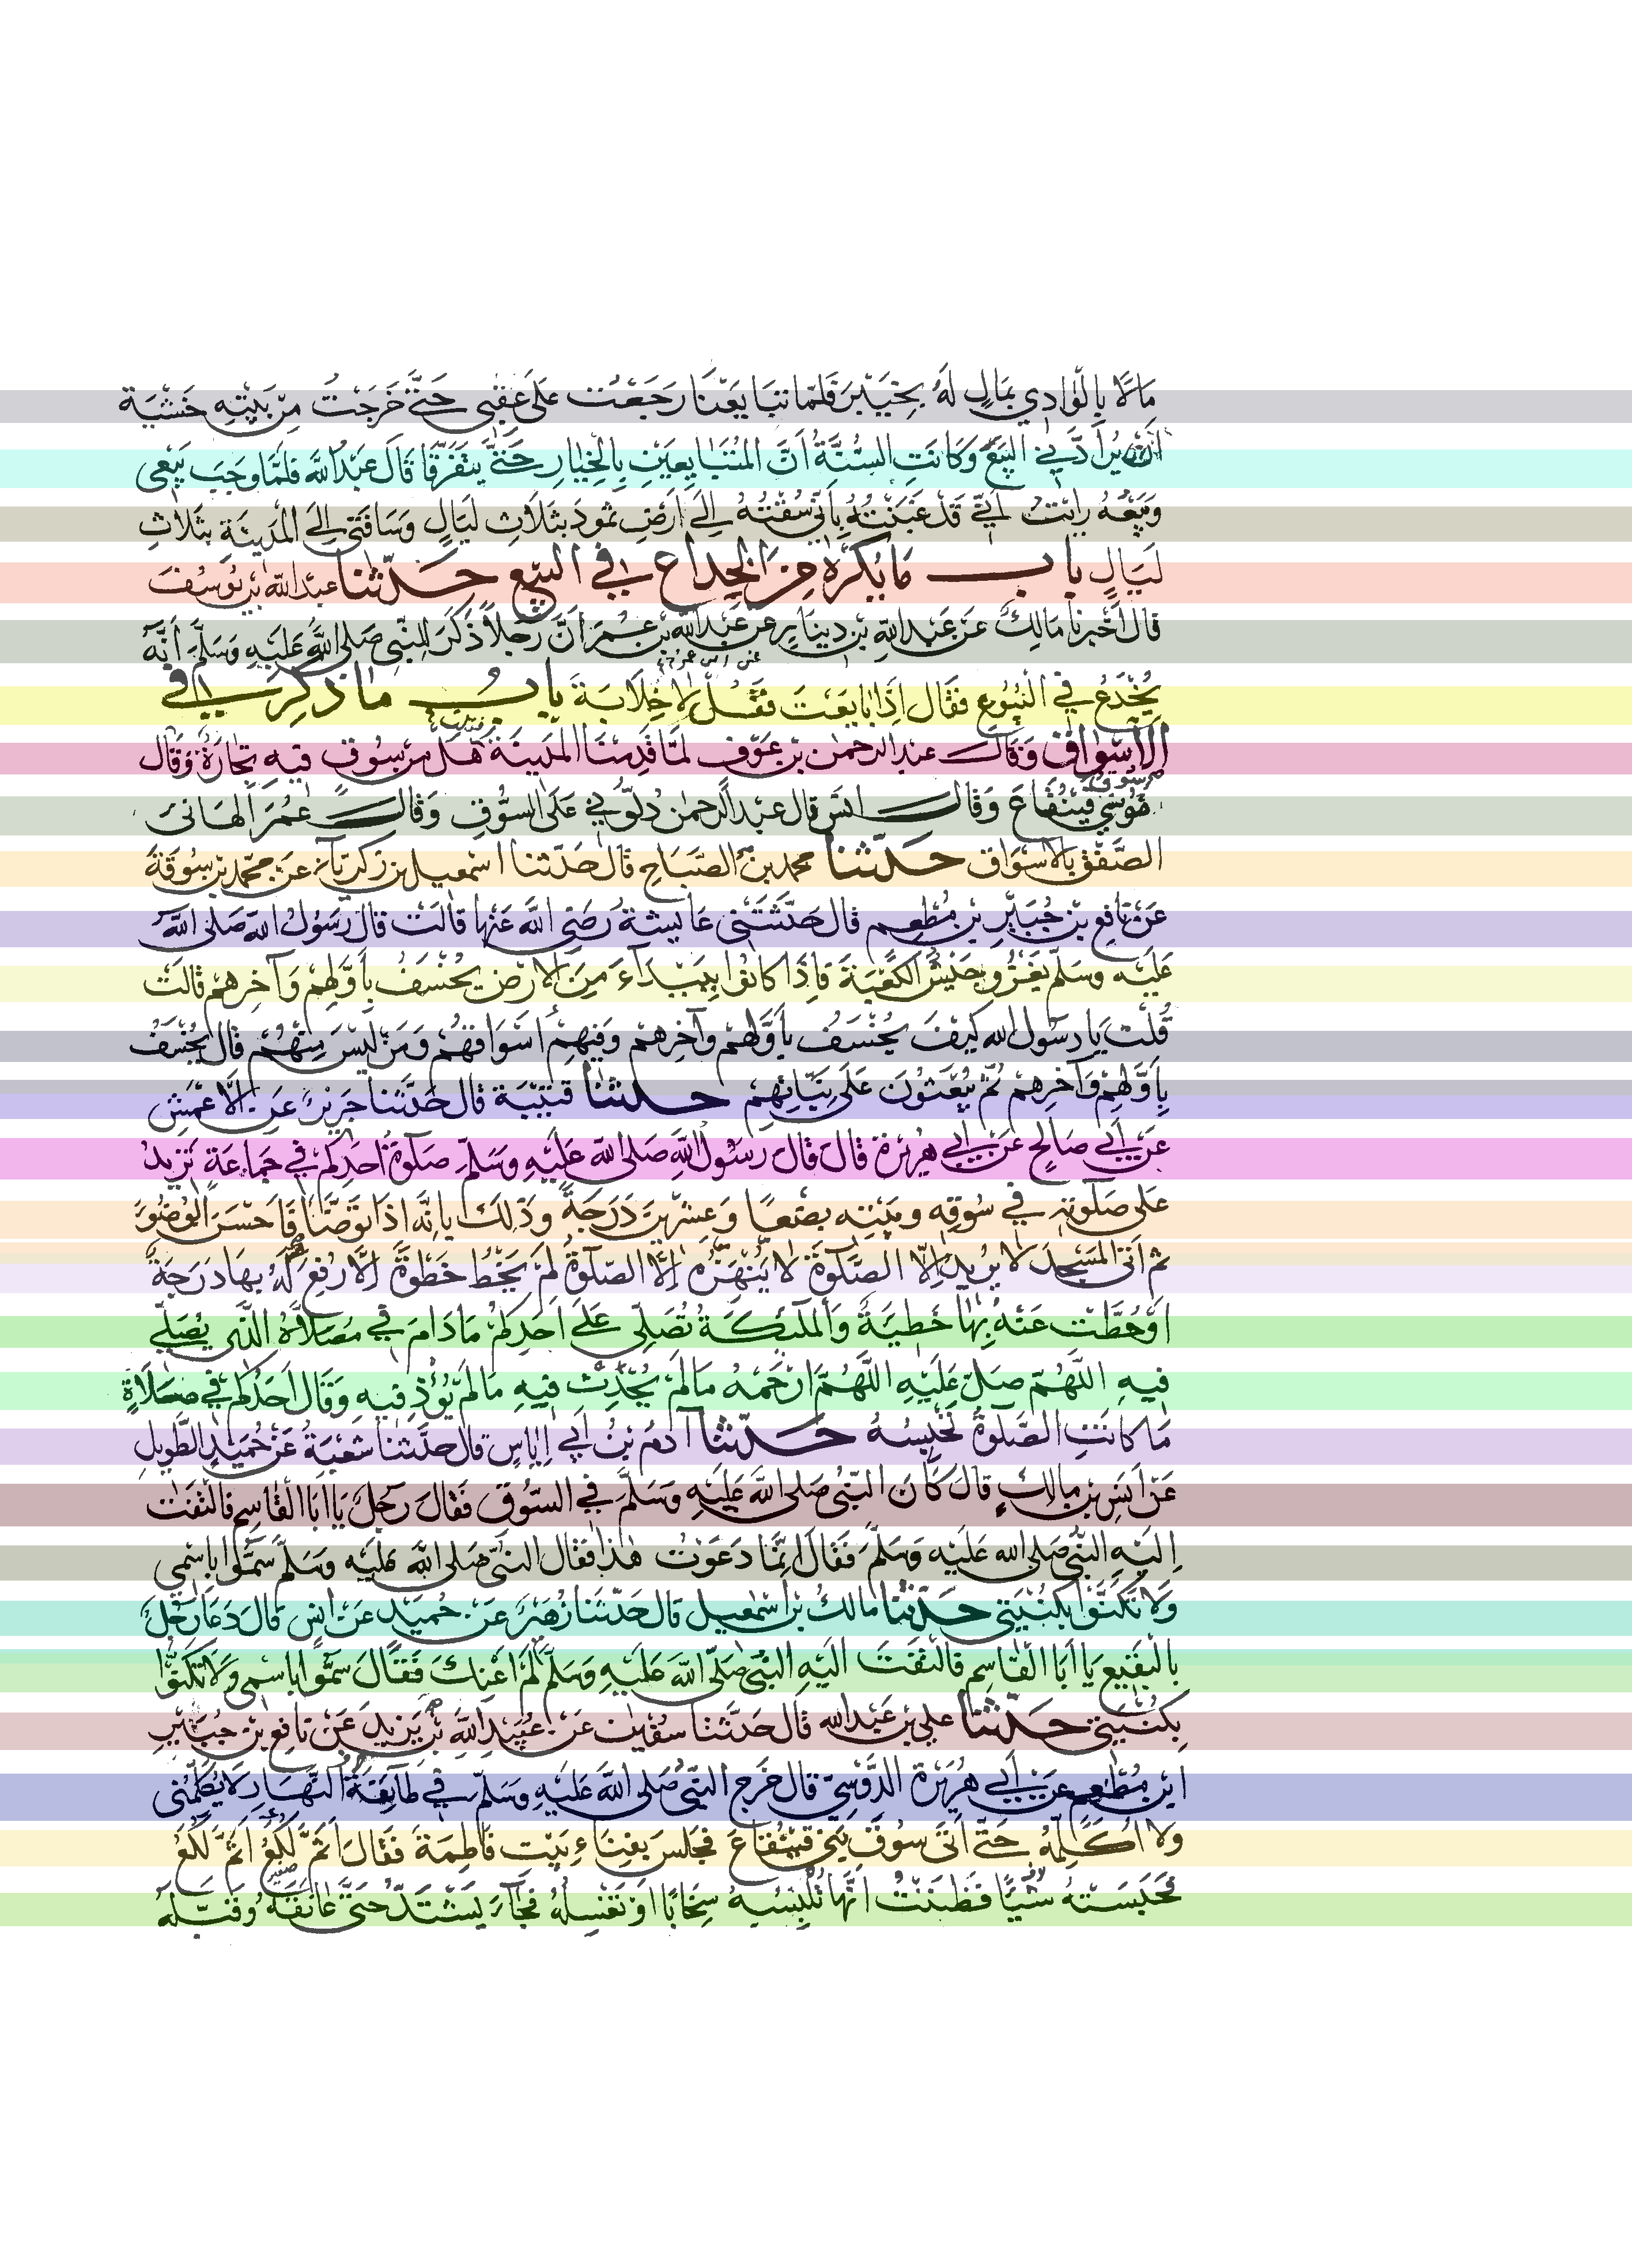 مَالًا بِالْوَادِي بِمَالٍ لَهُ بِخَيْبَرَ فَلَمَّا تَبَايَعْنَا رَجَعْتُ عَلَى عَقِبِي حَتَّى خَرَجْتُ مِنْ بَيْتِهِ خَشْيَةَ
أَنْ يُرَادَّنِي الْبَيْعَ وَكَانَتِ السُّنَّةُ أَنَّ الْمُتَبَايِعَيْنِ بِالْخِيَارِ حَتَّى يَتَفَرَّقَا قَالَ عَبْدُ اللَّهِ فَلَمَّا وَجَبَ بَيْعِي
وَبَيْعُهُ رَأَيْتُ أَنِّي قَدْ غَبَنْتُهُ بِأَنِّي سُقْتُهُ إِلَى أَرْضِ ثَمُودَ بِثَلَاثِ لَيَالٍ وَسَاقَنِي إِلَى الْمَدِينَةِ بِثَلَاثِ
لَيَالٍ باب مَا يُكْرَهُ مِنَ الْخِدَاعِ فِي الْبَيْعِ حَدَّثَنَا عَبْدُ اللَّهِ بْنُ يُوسُفَ
قَالَ أَخْبَرَنَا مَالِكٌ عَنْ عَبْدِ اللَّهِ بْنِ دِينَارٍ عَنْ عَبْدِ اللَّهِ بْنِ عُمَرَ أَنَّ رَجُلًا ذَكَرَ لِلنَّبِيِّ صَلَّى اللَّهُ عَلَيْهِ وَسَلَّمَ أَنَّهُ
يُخْدَعُ فِي الْبُيُوعِ فَقَالَ إِذَا بَايَعْتَ فَقُلْ لَا خِلَابَةَ بَابُ مَا ذُكِرَ فِي
الْأَسْوَاقِ وَقَالَ عَبْدُ الرَّحْمٰنِ بْنُ عَوْفٍ لَمَّا قَدِمْنَا الْمَدِينَةَ هَلْ مِنْ سُوقٍ فِيهِ تِجَارَةٌ وَقَالَ
قَيْنُقَاعَ وَقَالَ أَنَسٌ قَالَ عَبْدُ الرَّحْمٰنِ دُلُّونِي عَلَى السُّوقِ وَقَالَ عُمَرُ أَلْهَانِي
الصَّفْقُ بِالْأَسْوَاقِ حَدَّثَنَا مُحَمَّدُ بْنُ الصَّبَّاحِ قَالَ حَدَّثَنَا اسْمٰعِيلُ بْنُ زَكَرِيَّاءَ عَنْ مُحَمَّدِ بْنِ سُوقَةَ
عَنْ نَافِعِ بْنِ جُبَيْرِ بْنِ مُطْعِمٍ قَالَ حَدَّثَتْنِي عَائِشَةُ رَضِيَ اللَّهُ عَنْهَا قَالَتْ قَالَ رَسُولُ اللَّهِ صَلَّى اللَّهُ
عَلَيْهِ وَسَلَّمَ يَغْزُو جَيْشٌ الْكَعْبَةَ فَإِذَا كَانُوا بِبَيْدَاءَ مِنَ الْأَرْضِ يُخْسَفُ بِأَوَّلِهِمْ وَآخِرِهِمْ قَالَتْ
قُلْتُ يَا رَسُولَ اللَّهِ كَيْفَ يُخْسَفُ بِأَوَّلِهِمْ وَآخِرِهِمْ وَفِيهِمْ أَسْوَاقُهُمْ وَمَنْ لَيْسَ مِنْهُمْ قَالَ يُخْسَفُ
بِأَوَّلِهِمْ وَآخِرِهِمْ ثُمَّ يُبْعَثُونَ عَلَى نِيَّاتِهِمْ حَدَّثَنَا قُتَيْبَةُ قَالَ حَدَّثَنَا جَرِيرٌ عَنِ الْأَعْمَشِ
عَنْ أَبِي صَالِحٍ عَنْ أَبِي هُرَيْرَةَ قَالَ قَالَ رَسُولُ اللَّهِ صَلَّى اللَّهُ عَلَيْهِ وَسَلَّمَ صَلٰوةُ أَحَدِكُمْ فِي جَمَاعَةٍ تَزِيدُ
عَلَى صَلٰوتِهِ فِي سُوقِهِ وَبَيْتِهِ بِضْعًا وَعِشْرِينَ دَرَجَةً وَذٰلِكَ بِأَنَّهُ إِذَا تَوَضَّأَ فَأَحْسَنَ الْوُضُوءَ
ثُمَّ أَتَى الْمَسْجِدَ لَا يُرِيدُ إِلَّا الصَّلٰوةَ لَا يَنْهَزُهُ إِلَّا الصَّلٰوةُ لَمْ يَخْطُ خَطْوَةً إِلَّا رُفِعَ لَهُ بِهَا دَرَجَةً
أَوْ حُطَّتْ عَنْهُ بِهَا خَطِيئَةٌ وَالْمَلٰئِكَةُ تُصَلِّي عَلَى أَحَدِكُمْ مَا دَامَ فِي مُصَلَّاهُ الَّذِي يُصَلِّي
فِيهِ اللَّهُمَّ صَلِّ عَلَيْهِ اللَّهُمَّ ارْحَمْهُ مَا لَمْ يُحْدِثْ فِيهِ مَا لَمْ يُؤْذِ فِيهِ وَقَالَ أَحَدُكُمْ فِي صَلَاةٍ
مَا كَانَتِ الصَّلٰوةُ تَحْبِسُهُ حَدَّثَنَا آدَمُ بْنُ أَبِي إِيَاسٍ قَالَ حَدَّثَنَا شُعْبَةُ عَنْ حُمَيْدٍ الطَّوِيلِ
عَنْ أَنَسِ بْنِ مَالِكٍ قَالَ كَانَ النَّبِيُّ صَلَّى اللَّهُ عَلَيْهِ وَسَلَّمَ فِي السُّوقِ فَقَالَ رَجُلٌ يَا أَبَا الْقَاسِمِ فَالْتَفَتَ
إِلَيْهِ النَّبِيُّ صَلَّى اللَّهُ عَلَيْهِ وَسَلَّمَ فَقَالَ إِنَّمَا دَعَوْتُ هٰذَا فَقَالَ النَّبِيُّ صَلَّى اللَّهُ عَلَيْهِ وَسَلَّمَ سَمُّوا بِاسْمِي
وَلَا تَكَنَّوْا بِكُنْيَتِي حَدَّثَنَا مَالِكُ بْنُ اسْمٰعِيلَ قَالَ حَدَّثَنَا زُهَيْرٌ عَنْ حُمَيْدٍ عَنْ أَنَسٍ قَالَ دَعَا رَجُلٌ
بِالْبَقِيعِ يَا أَبَا الْقَاسِمِ فَالْتَفَتَ إِلَيْهِ النَّبِيُّ صَلَّى اللَّهُ عَلَيْهِ وَسَلَّمَ لَمْ أَعْنِكَ فَقَالَ سَمُّوا بِاسْمِي وَلَا تَكَنَّوْا
بِكُنْيَتِي حَدَّثَنَا عَلِيُّ بْنُ عَبْدِ اللَّهِ قَالَ حَدَّثَنَا سُفْيَانُ عَنْ عُبَيْدِ اللَّهِ بْنِ يَزِيدَ عَنْ نَافِعِ بْنِ جُبَيْرِ
ابْنِ مُطْعِمٍ عَنْ أَبِي هُرَيْرَةَ الدَّوْسِيِّ قَالَ خَرَجَ النَّبِيُّ صَلَّى اللَّهُ عَلَيْهِ وَسَلَّمَ فِي طَائِفَةِ النَّهَارِ لَا يُكَلِّمُنِي
وَلَا أُكَلِّمُهُ حَتَّى أَتَى سُوقَ بَنِي قَيْنُقَاعَ فَجَلَسَ بِفِنَاءِ بَيْتِ فَاطِمَةَ فَقَالَ أَثَمَّ لُكَعُ أَثَمَّ لُكَعُ
فَحَبَسَتْهُ شَيْئًا فَظَنَنْتُ أَنَّهَا تُلْبِسُهُ سِخَابًا أَوْ تُغَسِّلُهُ فَجَاءَ يَشْتَدُّ حَتَّى عَانَقَهُ وَقَبَّلَهُ